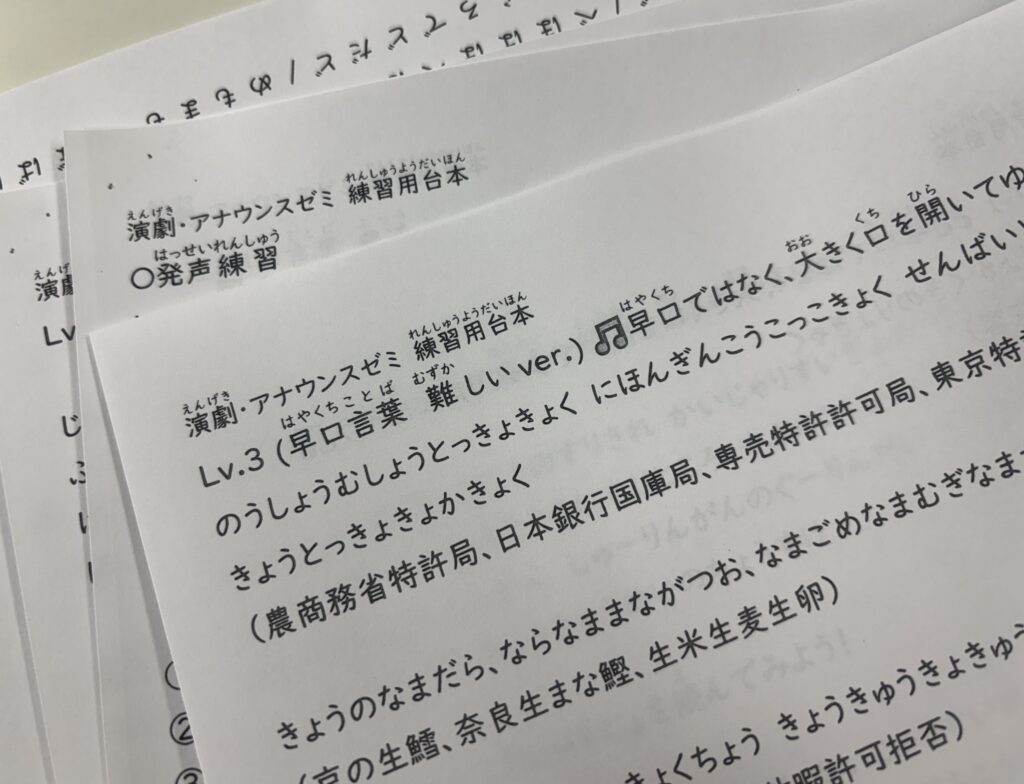 ばばばへばべ
もまもめ/どだとでろ
演劇・アナウンスゼミ 練習用台本
〇発声練習
演劇
Lv
演劇・アナウンスゼミ 練習用台本
Lv.3 (早口言葉 難しいver.) ♫早口ではなく、大きく口を開いてゆ
のうしょうむしょうとっきょきょく にほんぎんこうこっこきょく せんばい
きょうとっきょきょかきょく
(農商務省特許局、日本銀行国庫局、専売特許許可局、東京特
きょうのなまだら、ならなままながつお、なまごめなまむぎなま
(京の生鱈、奈良生まな鰹、生米生麦生卵)
くちょう きょうきゅうきょきゅう
暇許可拒否)
②
③